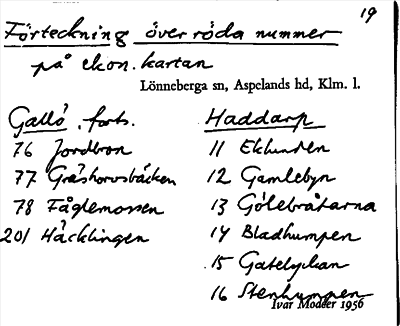 19
Förteckning över röda nummer
på ekon. kartan
Lönneberga sn, Aspelands hd, Klm. l.
Gallö, forts.
76 Jordbron
77 Gråshorvsbäcken
78 Fåglemossen
201 Häcklingen
Haddarp
11 Eklunden
12 Gamlebyn
13 Gölebråtarna
14 Bladhumpen
15 Gatelyckan
16 Stenhumpen
Ivar Modéer 1956